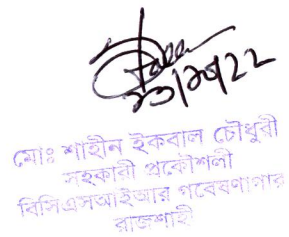 মোঃ শাহীন ইকবাল চৌধুরী
সহকারী প্রকৌশলী
বিসিএসআইআর গবেষণাগার
রাজশাহী